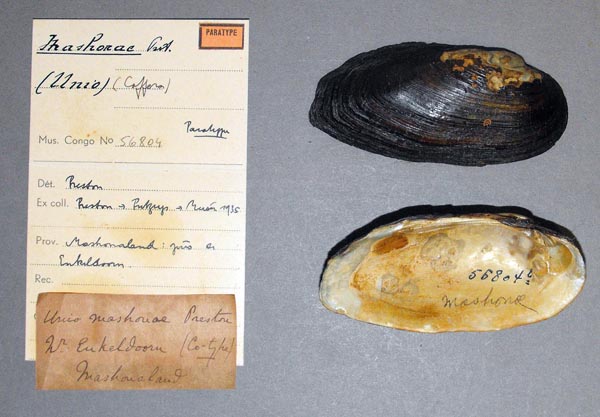 PARATYPE
Mashonae Prst.
(Unio) (Caffera)
Paratype
Mus. Congo No 56804
Dét. Preston
Ex coll. Preston → Putzeys → 1935
Prov. Mashonaland: près
Enkeldoorn.
Rec.
Unio mashonae Preston
Nr Enkeldoorn (Co-type)
Mashonaland
56804
mashonae